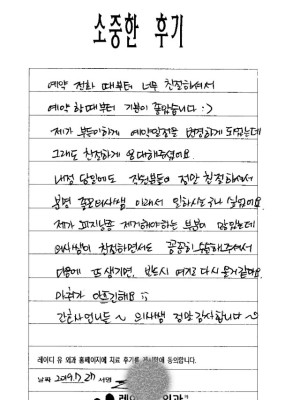 소중한 후기
예약 전화 때부터 너무 친절하셔서
예약 할때부터 기분이 좋았습니다 :)
제가 부득이하게 예약일정을 변경하게 되었는데
그래도 친절하게 응대해주셨어요.
내원 당일에도 직원분들이 정말 친절하셔서
분명 좋은의사쌤 아래서 일하시는구나 싶었어요
제가 피지낭종 제거해야하는 부분이 많았는데
의사쌤이 친절하면서도 꼼꼼히 수술해주셔서
다음에 또 생기면, 반드시 여기로 다시 올거같아요.
마취가 아프긴해요 ;;
간호사언니들 ~ 의사쌤 정말 감사합니다 ~☺
레이디 유 외과 홈페이지에 치료 후기를 게시함에 동의합니다.
날짜 2019. 7. 27 서명